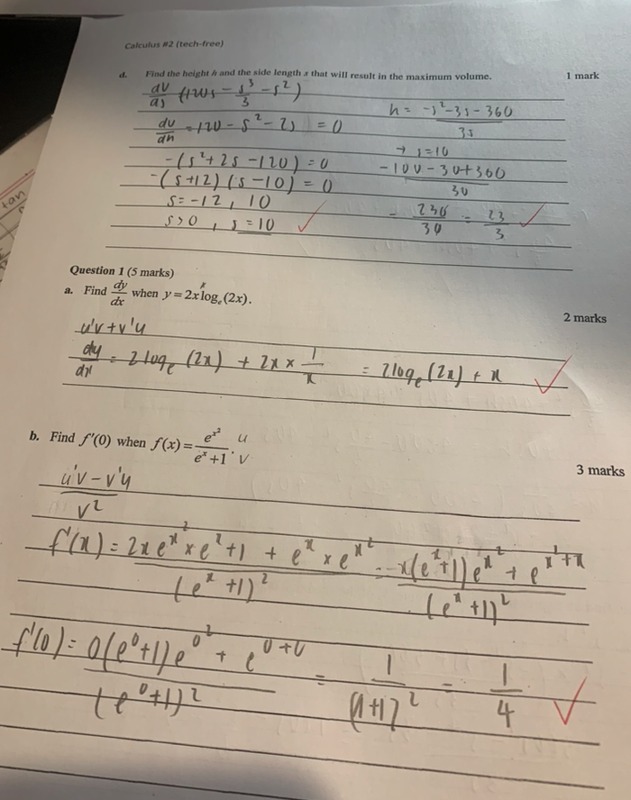 Calculus #2 (tech-free)
d. Find the height h and the side length s that will result in the maximum volume. 1 mark
dV/ds (120s - s³/3 - s²)
dv/dh = 120 - s² - 2s = 0
-(s² + 2s - 120) = 0
-(s+12)(s-10) = 0
s = -12, 10
s>0, s = 10
h = -s²-3s-360 / 3s
→ s=10
-100 - 30+360 / 30
= 230/30 = 23/3
Question 1 (5 marks)
a. Find dy/dx when y = 2x logₑ(2x). 2 marks
u'v + v'u
dy/dx = 2 logₑ (2x) + 2x × 1/x = 2 logₑ (2x) + x
b. Find f′(0) when f(x) = e^(x²) / (e^x + 1). u v 3 marks
u'v - v'u / v²
f'(x) = 2x e^x² × e^x + 1 + e^x × e^x² / (e^x + 1)² = x(e^x+1)e^x² + e^x²+x / (e^x+1)²
f'(0) = 0(e⁰+1)e^0² + e^0+0 / (e⁰+1)² = 1/(1+1)² = 1/4